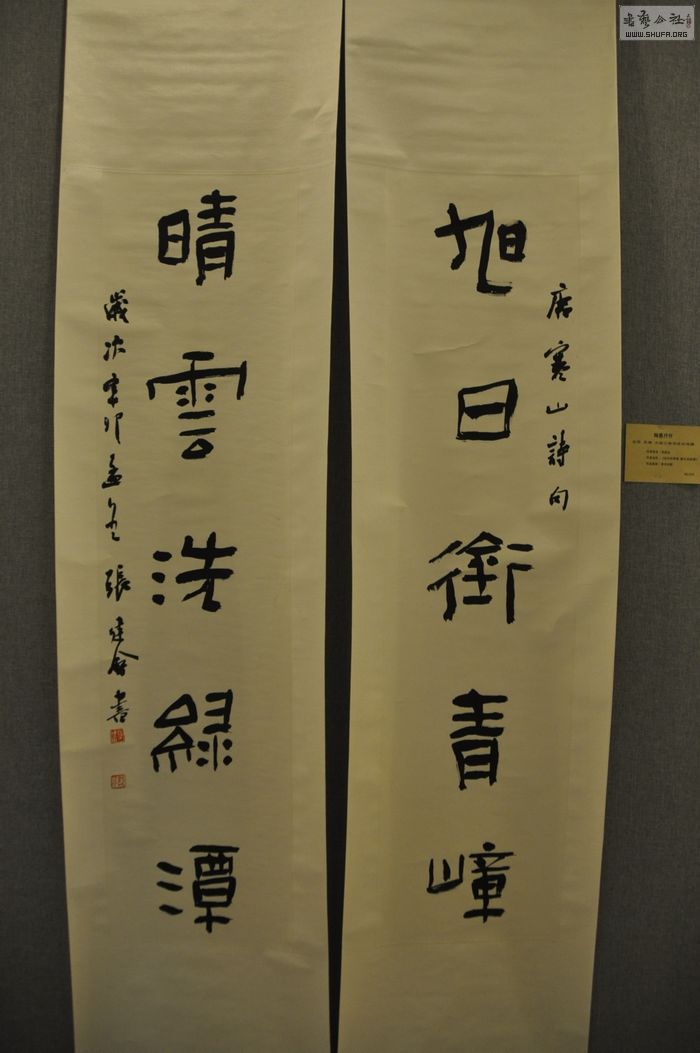 旭日銜青嶂
唐寒山詩句
晴雲洗綠潭
歲次辛卯孟冬張建會書
書藝公社
WWW.SHUFA.ORG